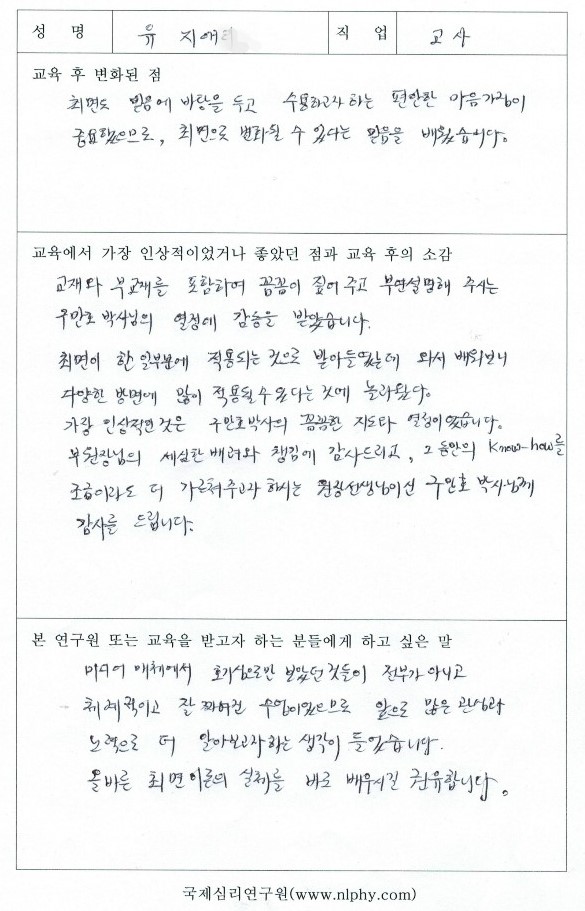 성 명 유 지애 직 업 교사
교육 후 변화된 점
최면도 믿음에 바탕을 두고 수용하고자 하는 편안한 마음가짐이
중요했으므로, 최면으로 변화될 수 있다는 믿음을 배웠습니다.
교육에서 가장 인상적이었거나 좋았던 점과 교육 후의 소감
교재와 부교재를 포함하여 꼼꼼이 짚어 주고 부연설명해 주시는
구만호 박사님의 열정에 감동을 받았습니다.
최면이 한 일부분에 적용되는 것으로 받아들였는데 와서 배워보니
다양한 방면에 많이 적용될 수 있다는 것에 놀라왔다.
가장 인상적인 것은 구만호박사의 꼼꼼한 지도와 열정이었습니다.
부원장님의 세심한 배려와 챙김에 감사드리고, 그 동안의 Know-how를
조금이라도 더 가르쳐주고자 하시는 원장선생님이신 구만호 박사님께
감사를 드립니다.
본 연구원 또는 교육을 받고자 하는 분들에게 하고 싶은 말
미디어 매체에서 호기심으로만 보았던 것들이 전부가 아니고
체계적이고 잘 짜여진 수업이었으므로 앞으로 많은 관심과
노력으로 더 알아보고자하는 생각이 들었습니다.
올바른 최면이론의 실체를 바로 배우시길 권유합니다.
국제심리연구원(www.nlphy.com)